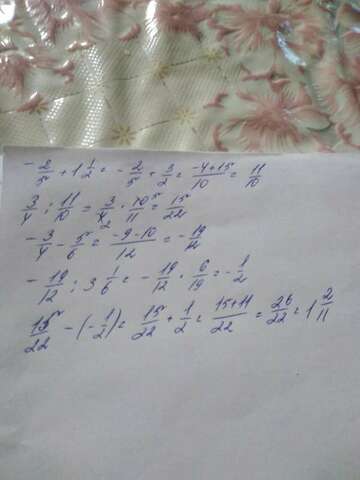 -2/5 + 1 1/2 = -2/5 + 3/2 = -4+15/10 = 11/10
3/4 : 11/10 = 3/4 2 · 10 5/11 = 15/22
-3/4 - 5/6 = -9-10/12 = -19/12
-19/12 : 3 1/6 = -19/12 · 6/19 = -1/2
15/22 - (-1/2) = 15/22 + 1/2 = 15+11/22 = 26/22 = 1 2/11